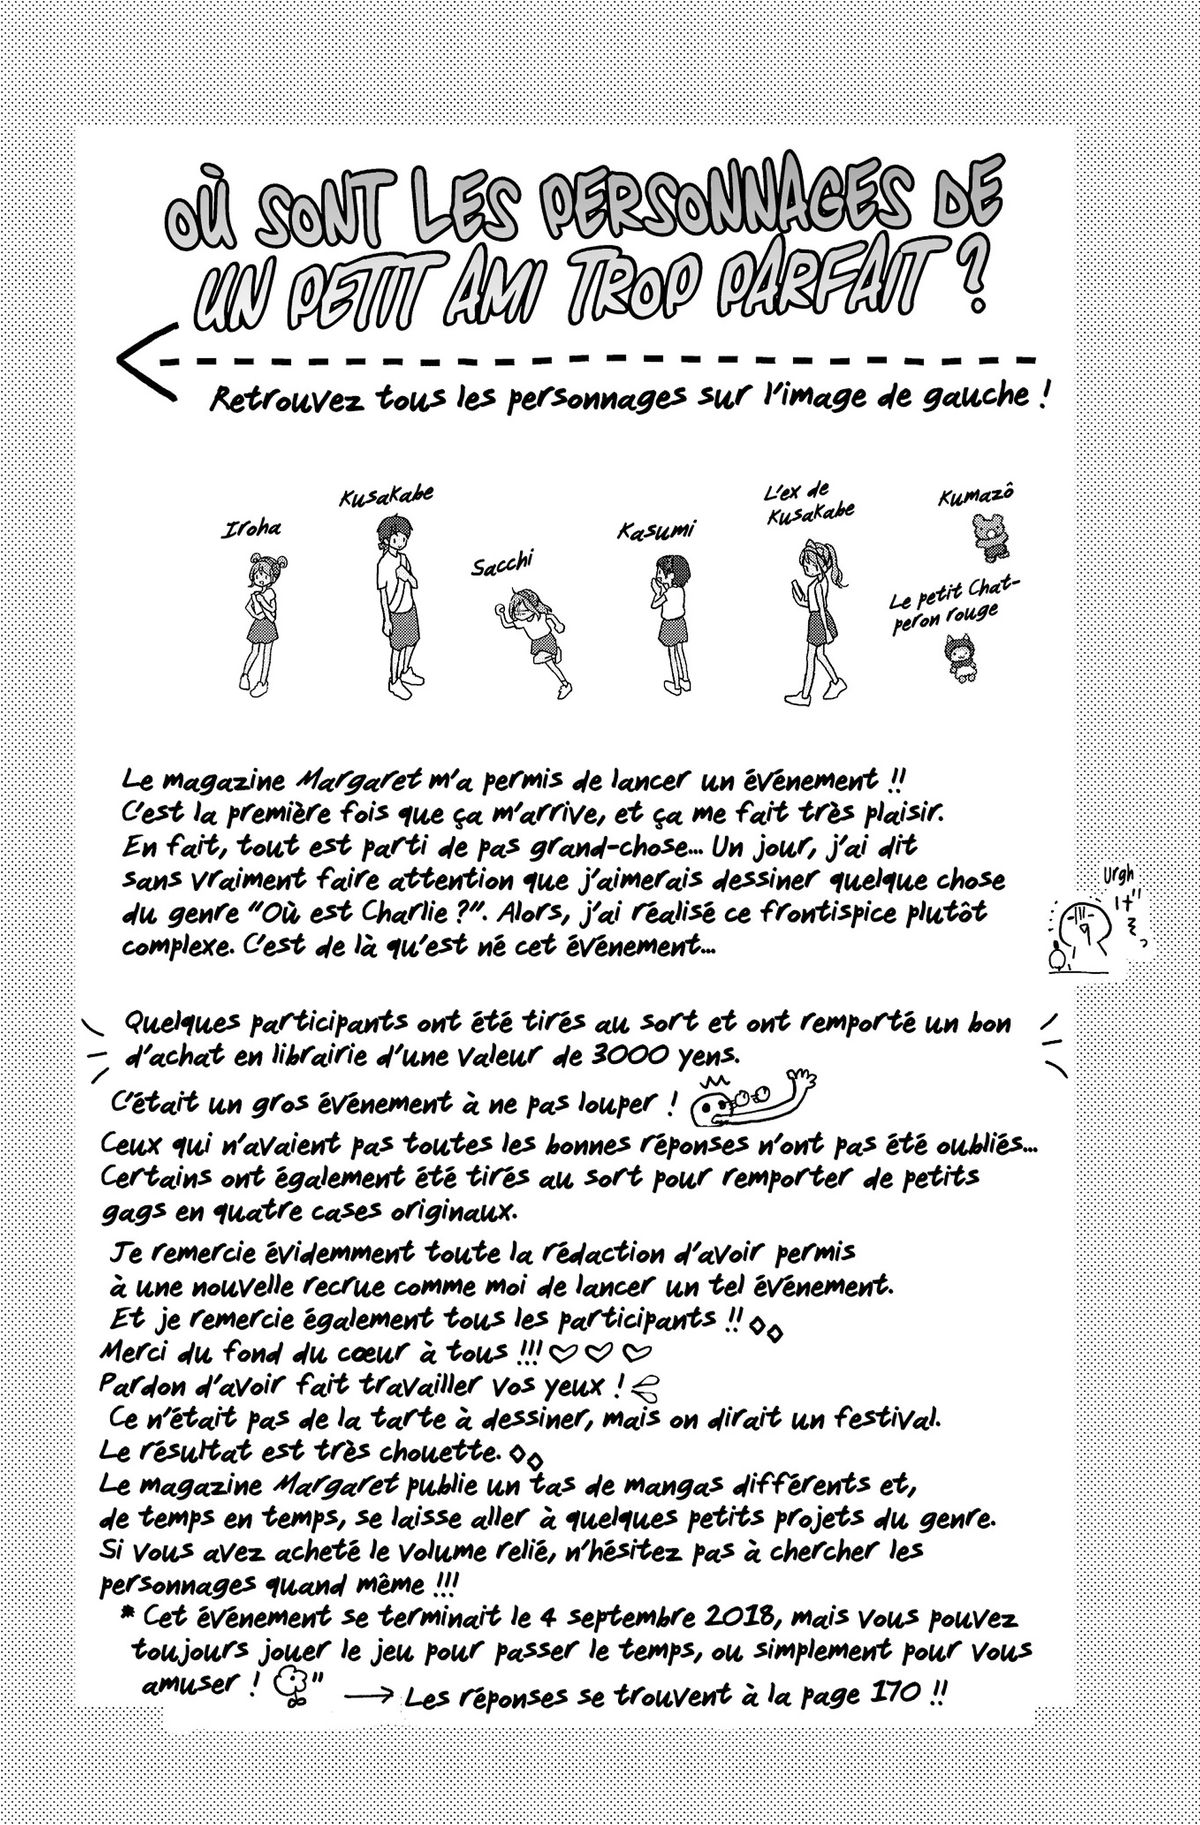 OÙ SONT LES PERSONNAGES DE
UN PETIT AMI TROP PARFAIT ?
Retrouvez tous les personnages sur l'image de gauche !
Iroha
Kusakabe
Sacchi
Kasumi
L'ex de
Kusakabe
Kumazô
Le petit Chat-
peron rouge
Le magazine Margaret m'a permis de lancer un événement !!
C'est la première fois que ça m'arrive, et ça me fait très plaisir.
En fait, tout est parti de pas grand-chose... Un jour, j'ai dit
sans vraiment faire attention que j'aimerais dessiner quelque chose
du genre "Où est Charlie ?". Alors, j'ai réalisé ce frontispice plutôt
complexe. C'est de là qu'est né cet événement...
Urgh
Quelques participants ont été tirés au sort et ont remporté un bon
d'achat en librairie d'une valeur de 3000 yens.
C'était un gros événement à ne pas louper !
Ceux qui n'avaient pas toutes les bonnes réponses n'ont pas été oubliés...
Certains ont également été tirés au sort pour remporter de petits
gags en quatre cases originaux.
Je remercie évidemment toute la rédaction d'avoir permis
à une nouvelle recrue comme moi de lancer un tel événement.
Et je remercie également tous les participants !!
Merci du fond du cœur à tous !!! ♡♡♡
Pardon d'avoir fait travailler vos yeux !
Ce n'était pas de la tarte à dessiner, mais on dirait un festival.
Le résultat est très chouette.
Le magazine Margaret publie un tas de mangas différents et,
de temps en temps, se laisse aller à quelques petits projets du genre.
Si vous avez acheté le volume relié, n'hésitez pas à chercher les
personnages quand même !!!
* Cet événement se terminait le 4 septembre 2018, mais vous pouvez
toujours jouer le jeu pour passer le temps, ou simplement pour vous
amuser !
→ Les réponses se trouvent à la page 170 !!